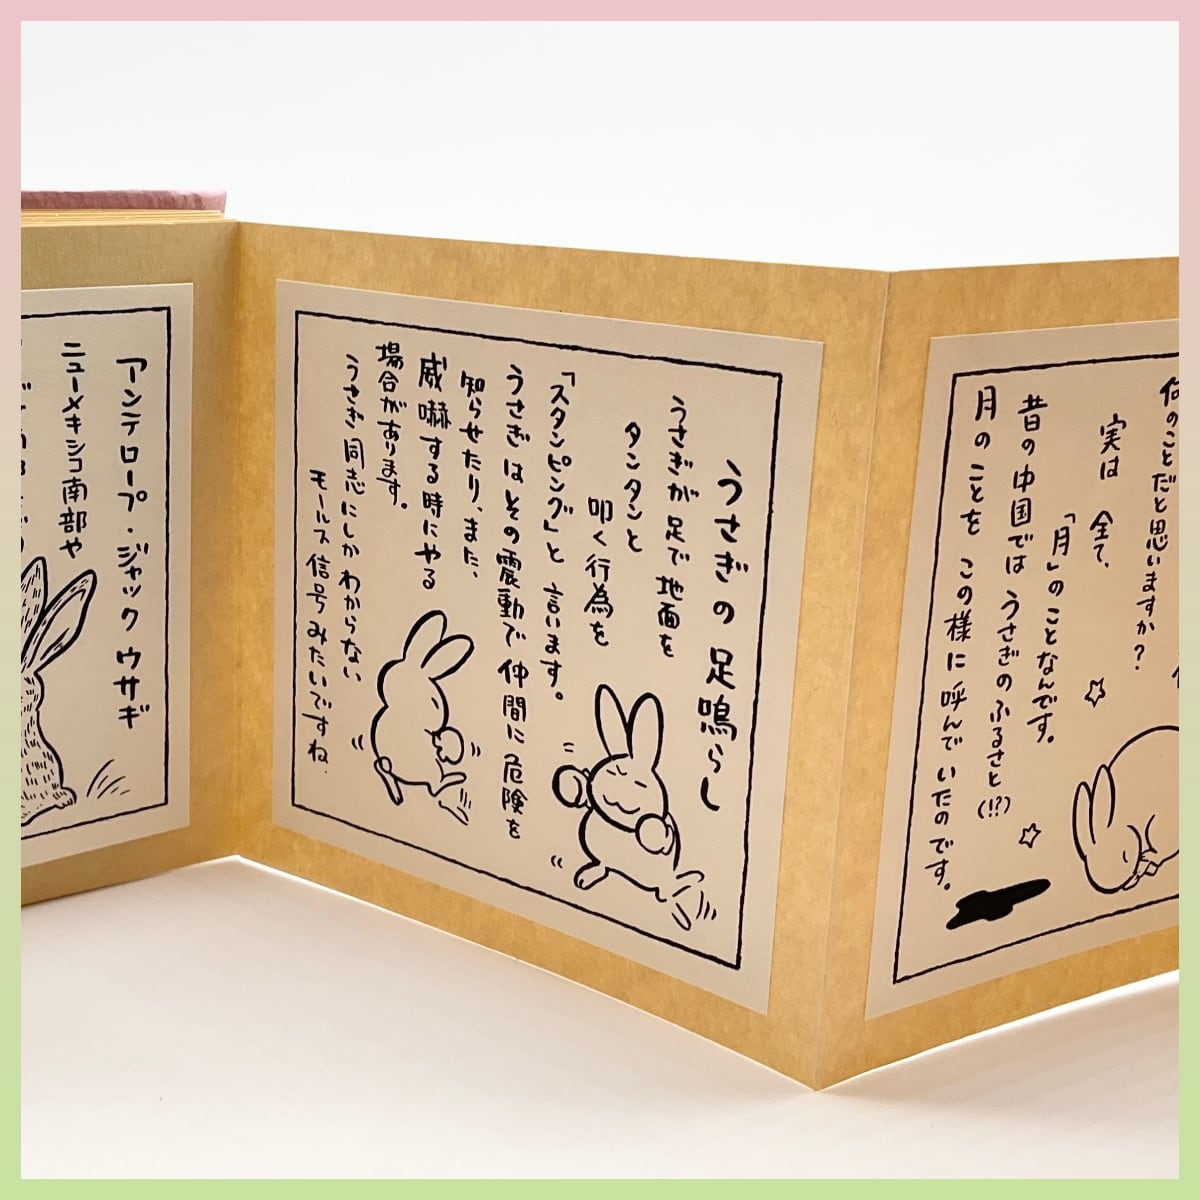 何のことだと思いますか?
実は 全て、
「月」のことなんです。
昔の中国では うさぎのふるさと(!?)
月のことを この様に呼んでいたのです。
うさぎの足鳴らし
うさぎが足で地面を
タンタンと
叩く行為を
「スタンピング」と言います。
うさぎはその震動で仲間に危険を
知らせたり、また、
威嚇する時にやる
場合があります。
うさぎ同志にしかわからない
モールス信号みたいですね.
アンテロープ・ジャックウサギ
ニューメキシコ南部や